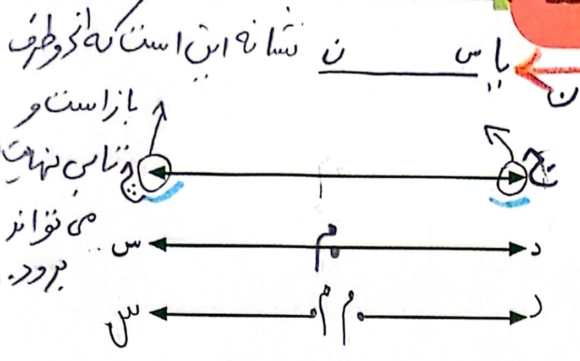 یا س ن نشانه این است که از دو طرف
ن
باز است و
ج چ تا بی نهایت
می تواند
د م س
برود.
د م م س